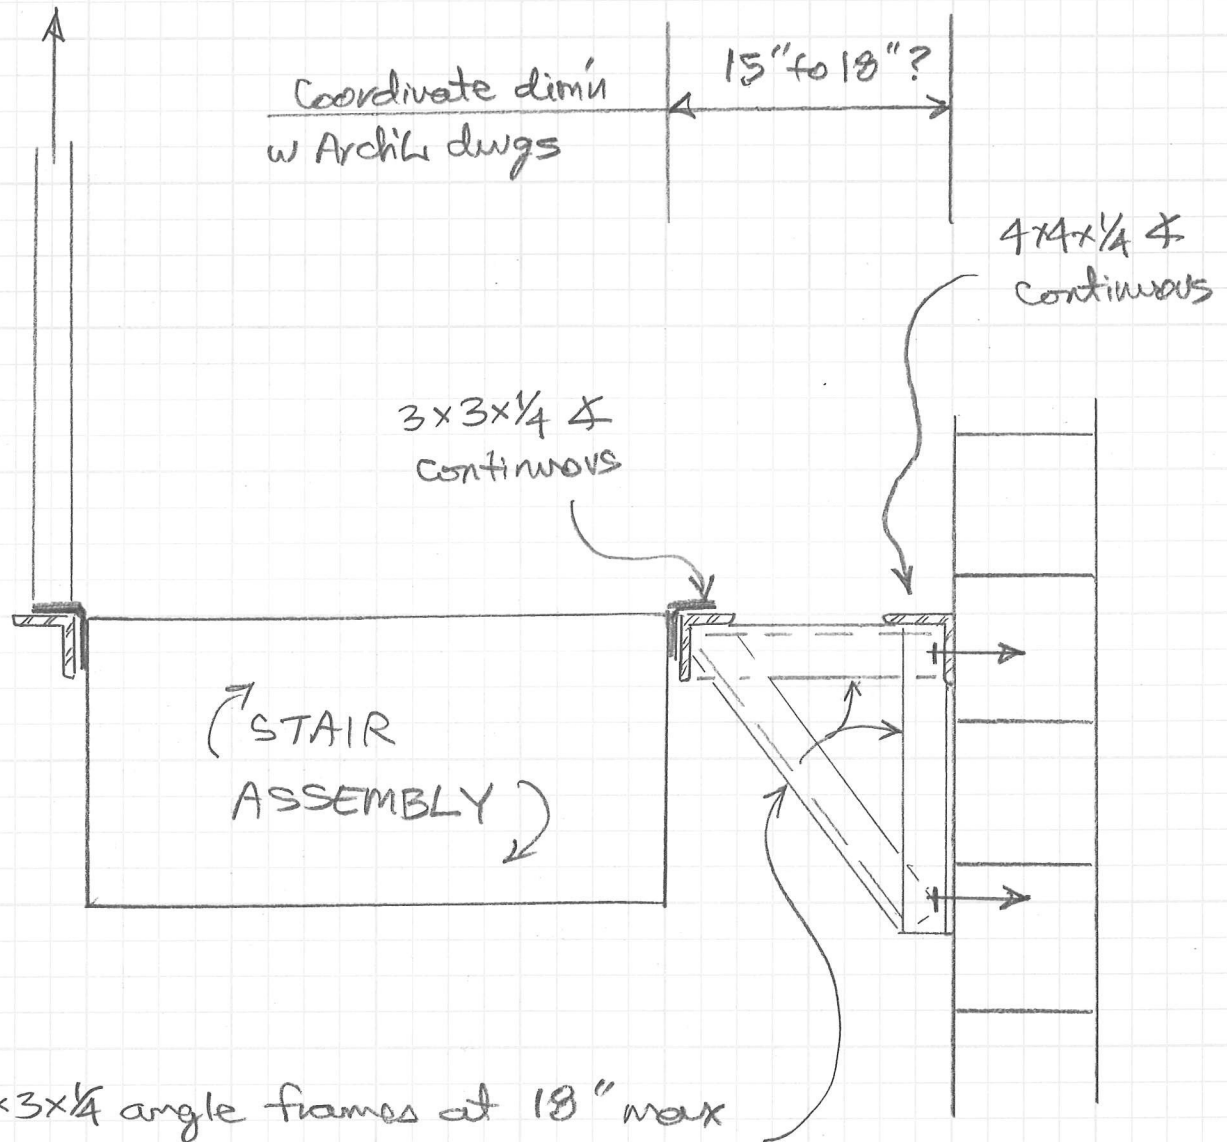 Coordinate dim'n
w Arch'l dwgs
15" to 18"?
4x4x1/4 ∡
continuous
3x3x1/4 ∡
continuous
STAIR
ASSEMBLY
x3x1/4 angle frames at 18" max